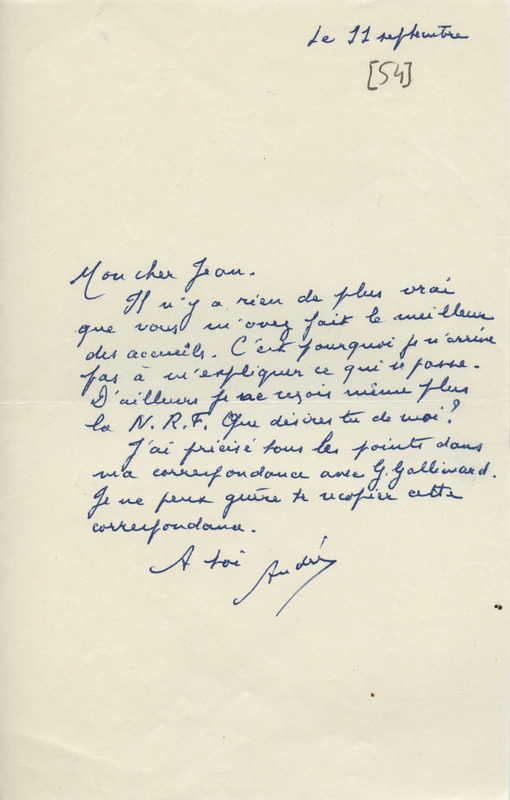 Le 11 septembre
[54]
Mon cher Jean.
Il n'y a rien de plus vrai
que vous m'avez fait le meilleur
des accueils. C'est pourquoi je n'arrive
pas à m'expliquer ce qui se passe.
D'ailleurs je ne reçois même plus
la N.R.F. Que désires tu de moi?
J'ai précisé tous les points dans
ma correspondance avec G. Gallimard.
Je ne peux guère te recopier cette
correspondance.
A toi
André